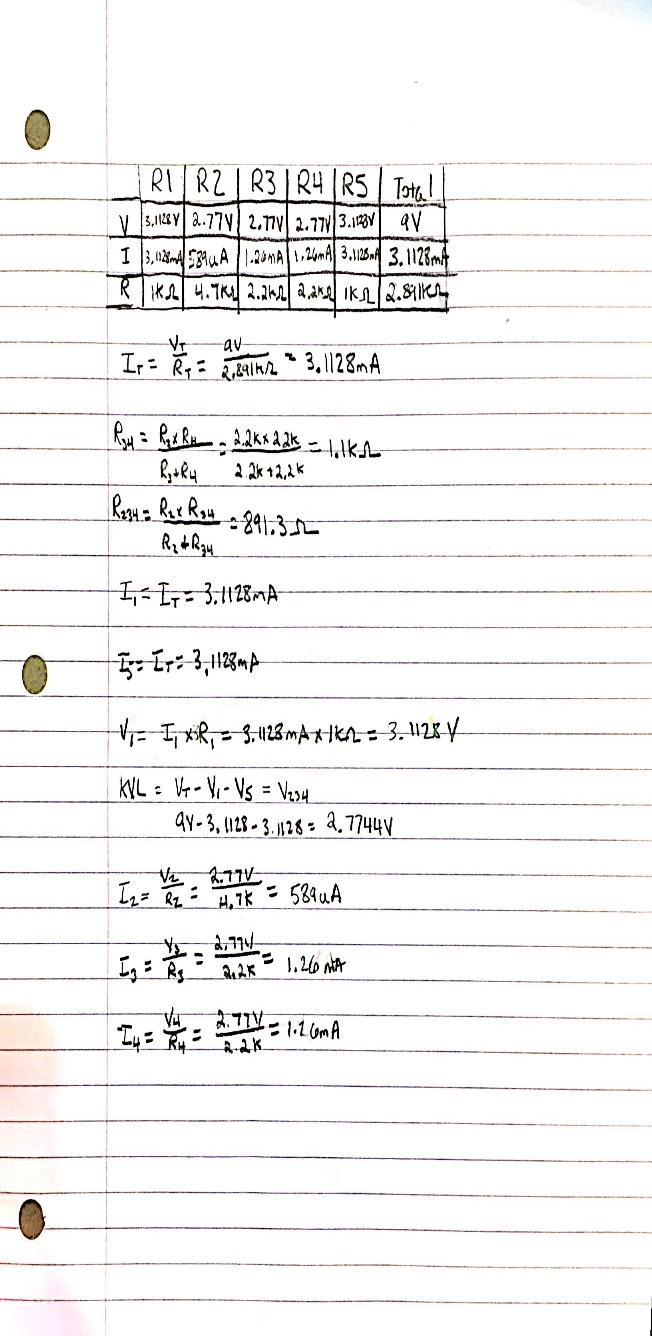 R1 R2 R3 R4 R5 Total
V 3.1128V 2.77V 2.77V 2.77V 3.1128V 9V
I 3.1128mA 589uA 1.26mA 1.26mA 3.1128mA 3.1128mA
R 1KΩ 4.7KΩ 2.2KΩ 2.2KΩ 1KΩ 2.891KΩ
I_T = V_T/R_T = 9V/2.891KΩ = 3.1128mA
R_34 = (R_3 x R_4)/(R_3 + R_4) = (2.2K x 2.2K)/(2.2K + 2.2K) = 1.1KΩ
R_234 = (R_2 x R_34)/(R_2 + R_34) = 891.3Ω
I_1 = I_T = 3.1128mA
I_5 = I_T = 3.1128mA
V_1 = I_1 x R_1 = 3.1128mA x 1KΩ = 3.1128V
KVL = V_T - V_1 - V_5 = V_234
9V - 3.1128 - 3.1128 = 2.7744V
I_2 = V_2/R_2 = 2.77V/4.7K = 589uA
I_3 = V_3/R_3 = 2.77V/2.2K = 1.26mA
I_4 = V_4/R_4 = 2.77V/2.2K = 1.26mA